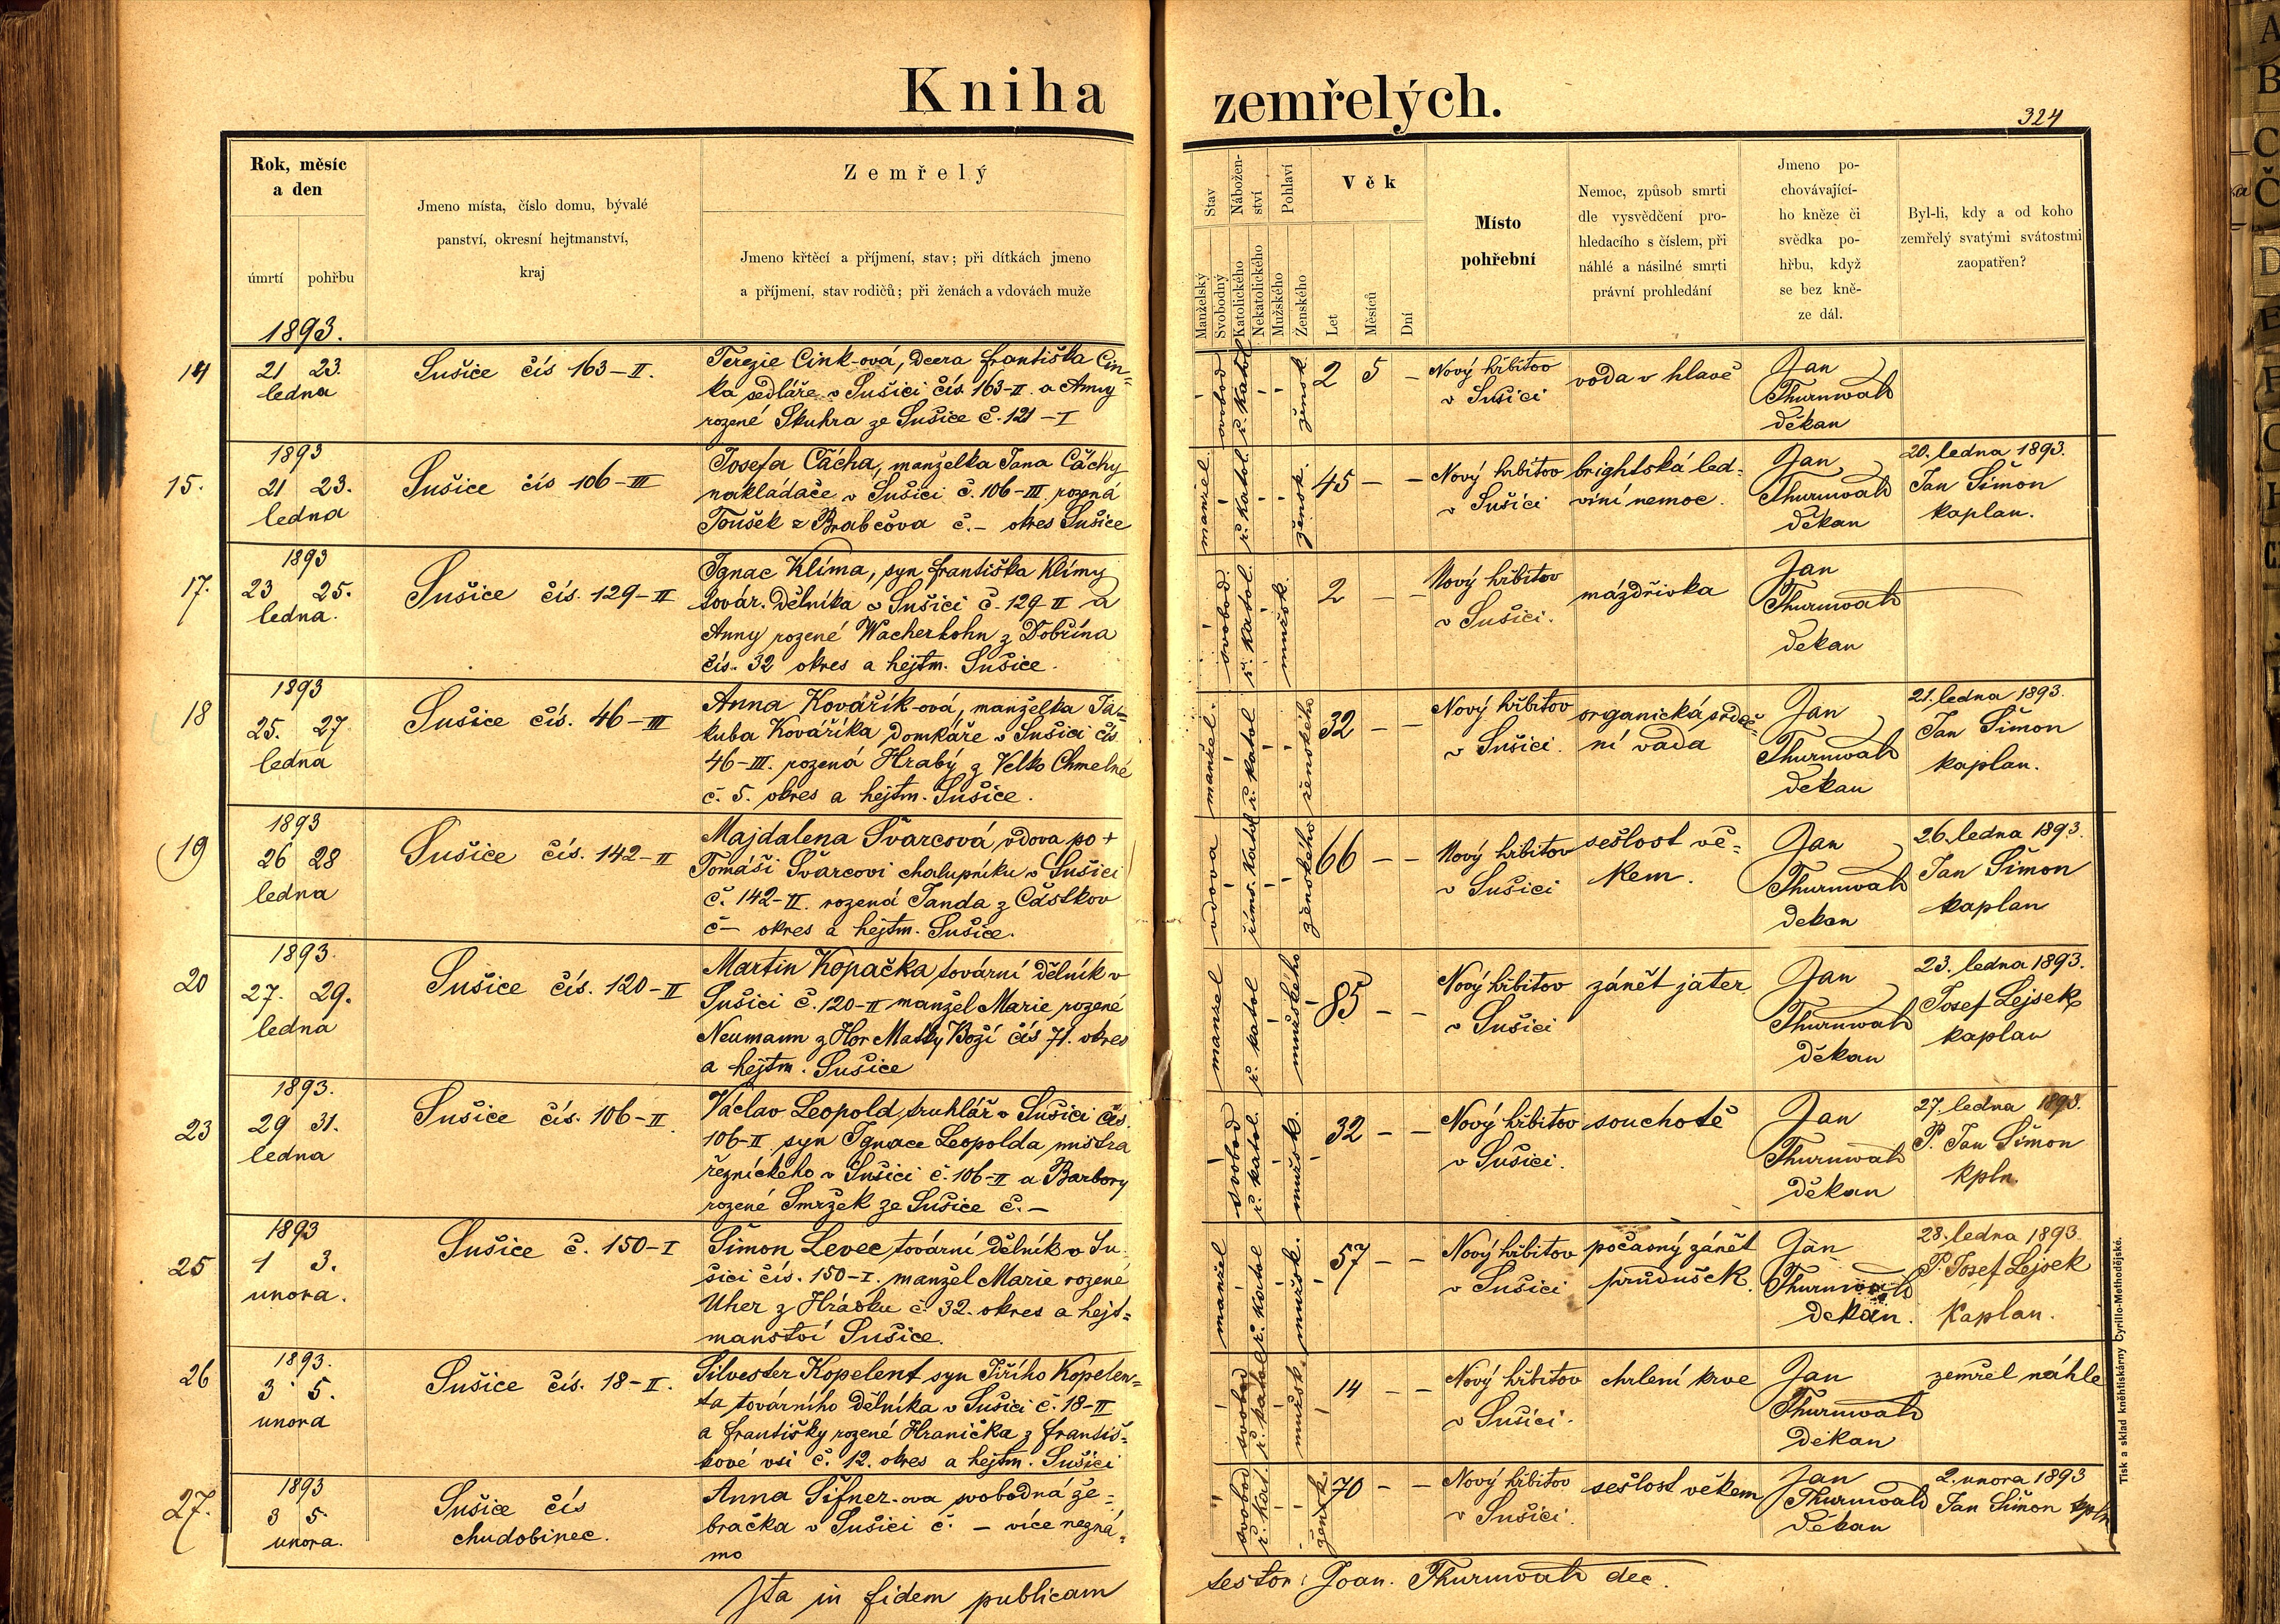 Kniha zemřelých.
324
Rok, měsíc
a den
úmrtí pohřbu
Jmeno místa, číslo domu, bývalé
panství, okresní hejtmanství,
kraj
Zemřelý
Jmeno křtěcí a příjmení, stav; při dítkách jmeno
a příjmení, stav rodičů; při ženách a vdovách muže
Stav
Manželský
Svobodný
Nábožen-
ství
Katolického
Nekatolického
Pohlaví
Mužského
Ženského
Věk
Let
Měsíců
Dní
Místo
pohřební
Nemoc, způsob smrti
dle vysvědčení pro-
hledacího s číslem, při
náhlé a násilné smrti
právní prohledání
Jmeno po-
chovávající-
ho kněze či
svědka po-
hřbu, když
se bez kně-
ze dál.
Byl-li, kdy a od koho
zemřelý svatými svátostmi
zaopatřen?
1893.
14
21 23.
ledna
Sušice čís 163–II.
Terezie Cink-ová, dcera Františka Cin-
ka sedláře v Sušici čís. 163–II. a Anny
rozené Skuhra ze Sušice č. 121–I
svobod
ř. katol
žensk.
2 5 –
Nový hřbitov
v Sušici
voda v hlavě
Jan
Thurnwald
děkan
1893
15.
21 23.
ledna
Sušice čís 106–III
Josefa Čácha, manželka Jana Čáchy
nakladače v Sušici č. 106–III. rozená
Toušek z Brabčova č. – okres Sušice
manžel
ř. katol.
žensk.
45 – –
Nový hřbitov
v Sušici
brightská led-
viní nemoc.
Jan
Thurnwald
děkan
20. ledna 1893.
Jan Šimon
kaplan.
1893
17.
23 25.
ledna.
Sušice čís. 129–II
Ignac Klíma, syn Františka Klímy
továr. dělníka v Sušici č. 129 II a
Anny rozené Wacherlohn z Dobřína
čís. 32 okres a hejtm. Sušice.
svobod.
ř. katol.
mužsk.
2 – –
Nový hřbitov
v Sušici.
mázdřivka
Jan
Thurnwald
děkan
1893
18
25. 27.
ledna
Sušice čís. 46–III
Anna Kovářík-ová, manželka Ja-
kuba Kováříka domkáře v Sušici čís
46–III. rozená Hrabý z Velko Chmelné
č. 5. okres a hejtm. Sušice.
manžel.
ř. katol
ženského
32 – –
Nový hřbitov
v Sušici.
organická srdeč-
ní vada
Jan
Thurnwald
děkan
21. ledna 1893.
Jan Šimon
kaplan.
1893
19
26 28
ledna
Sušice čís. 142–II
Majdalena Švarcová, vdova po +
Tomáši Švarcovi chalupníku v Sušici
č. 142–II. rozená Janda z Částkov
č – okres a hejtm. Sušice.
vdova
říms. katol
ženského
66 – –
Nový hřbitov
v Sušici
sešlost vě-
kem.
Jan
Thurnwald
děkan
26. ledna 1893.
Jan Šimon
kaplan
1893.
20
27. 29.
ledna
Sušice čís. 120–II
Martin Kopačka tovární dělník v
Sušici č. 120–II manžel Marie rozené
Neumann z Hor Matky Boží čís 71. okres
a hejtm. Sušice
manžel
ř. katol
mužského
85 – –
Nový hřbitov
v Sušici
zánět jater
Jan
Thurnwald
děkan
23. ledna 1893.
Josef Lejsek
kaplan
1893.
23
29 31.
ledna
Sušice čís. 106–II.
Václav Leopold, truhlář v Sušici čís.
106–II syn Ignace Leopolda mistra
řeznického v Sušici č. 106–II a Barbory
rozené Smržek ze Sušice č. –
svobod
ř. katol.
mužsk.
32 – –
Nový hřbitov
v Sušici.
souchotě
Jan
Thurnwald
děkan
27. ledna 1893.
P. Jan Šimon
kpln.
1893
25
1 3.
unora.
Sušice č. 150–I
Šimon Levec tovární dělník v Su-
šici čís. 150–I. manžel Marie rozené
Uher z Hrádku č. 32. okres a hejt-
manství Sušice.
manžel
ř. katol
mužsk.
57 – –
Nový hřbitov
v Sušici
počasný zánět
průdušek.
Jan
Thurnwald
děkan.
28. ledna 1893.
P. Josef Lejsek
Kaplan.
1893.
26
3 5.
unora
Sušice čís. 18–II.
Silvester Kopelent syn Jiřího Kopelen-
ta továrního dělníka v Sušici č. 18–II
a Františky rozené Hranička z Františ-
kové vsi č. 12. okres a hejtm. Sušici
svobod
ř. katol
mužsk.
14 – –
Nový hřbitov
v Sušici.
chrlení krve
Jan
Thurnwald
děkan
zemřel náhle
1893
27.
3 5.
unora.
Sušice čís
chudobinec.
Anna Šifner-ova svobodná že-
bračka v Sušici č. – více nezná-
mo
svobod
ř. kat.
žensk.
70 – –
Nový hřbitov
v Sušici.
sešlost věkem
Jan
Thurnwald
děkan
2. unora 1893
Jan Šimon kpln
Ita in fidem publicam
testor: Joan. Thurnwald dec.
Tisk a sklad kněhtiskárny Cyrillo-Methodějské.